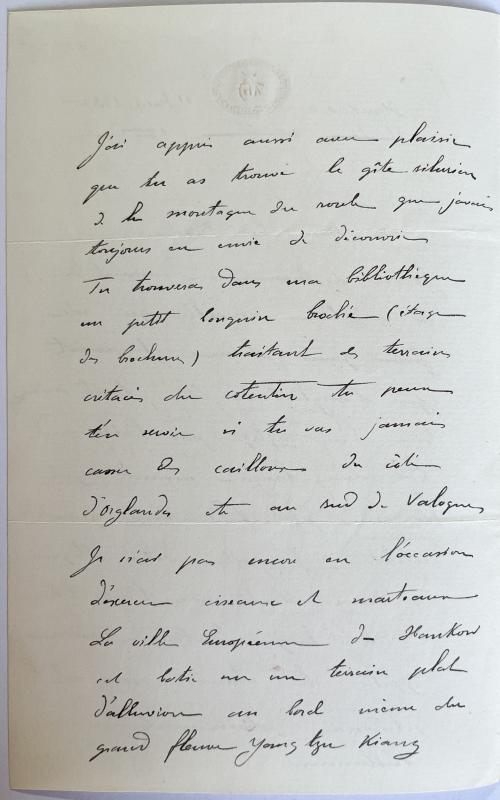 J'ai appris aussi avec plaisir
que tu as trouvé le gîte silurien
de la montagne du roule que j'avais
toujours eu envie de découvrir
Tu trouveras dans ma bibliothèque
un petit bouquin broché (étage
des brochures) traitant des terrains
crétacés du cotentin tu peux
t'en servir si tu vas jamais
casser des cailloux du côté
d'Orglandes et au sud de Valognes
Je n'ai pas encore eu l'occasion
d'exercer ciseaux et marteaux
La ville Européenne de Hankow
est batie sur un terrain plat
d'alluvion au bord même du
grand fleuve Yang tzu Kiang